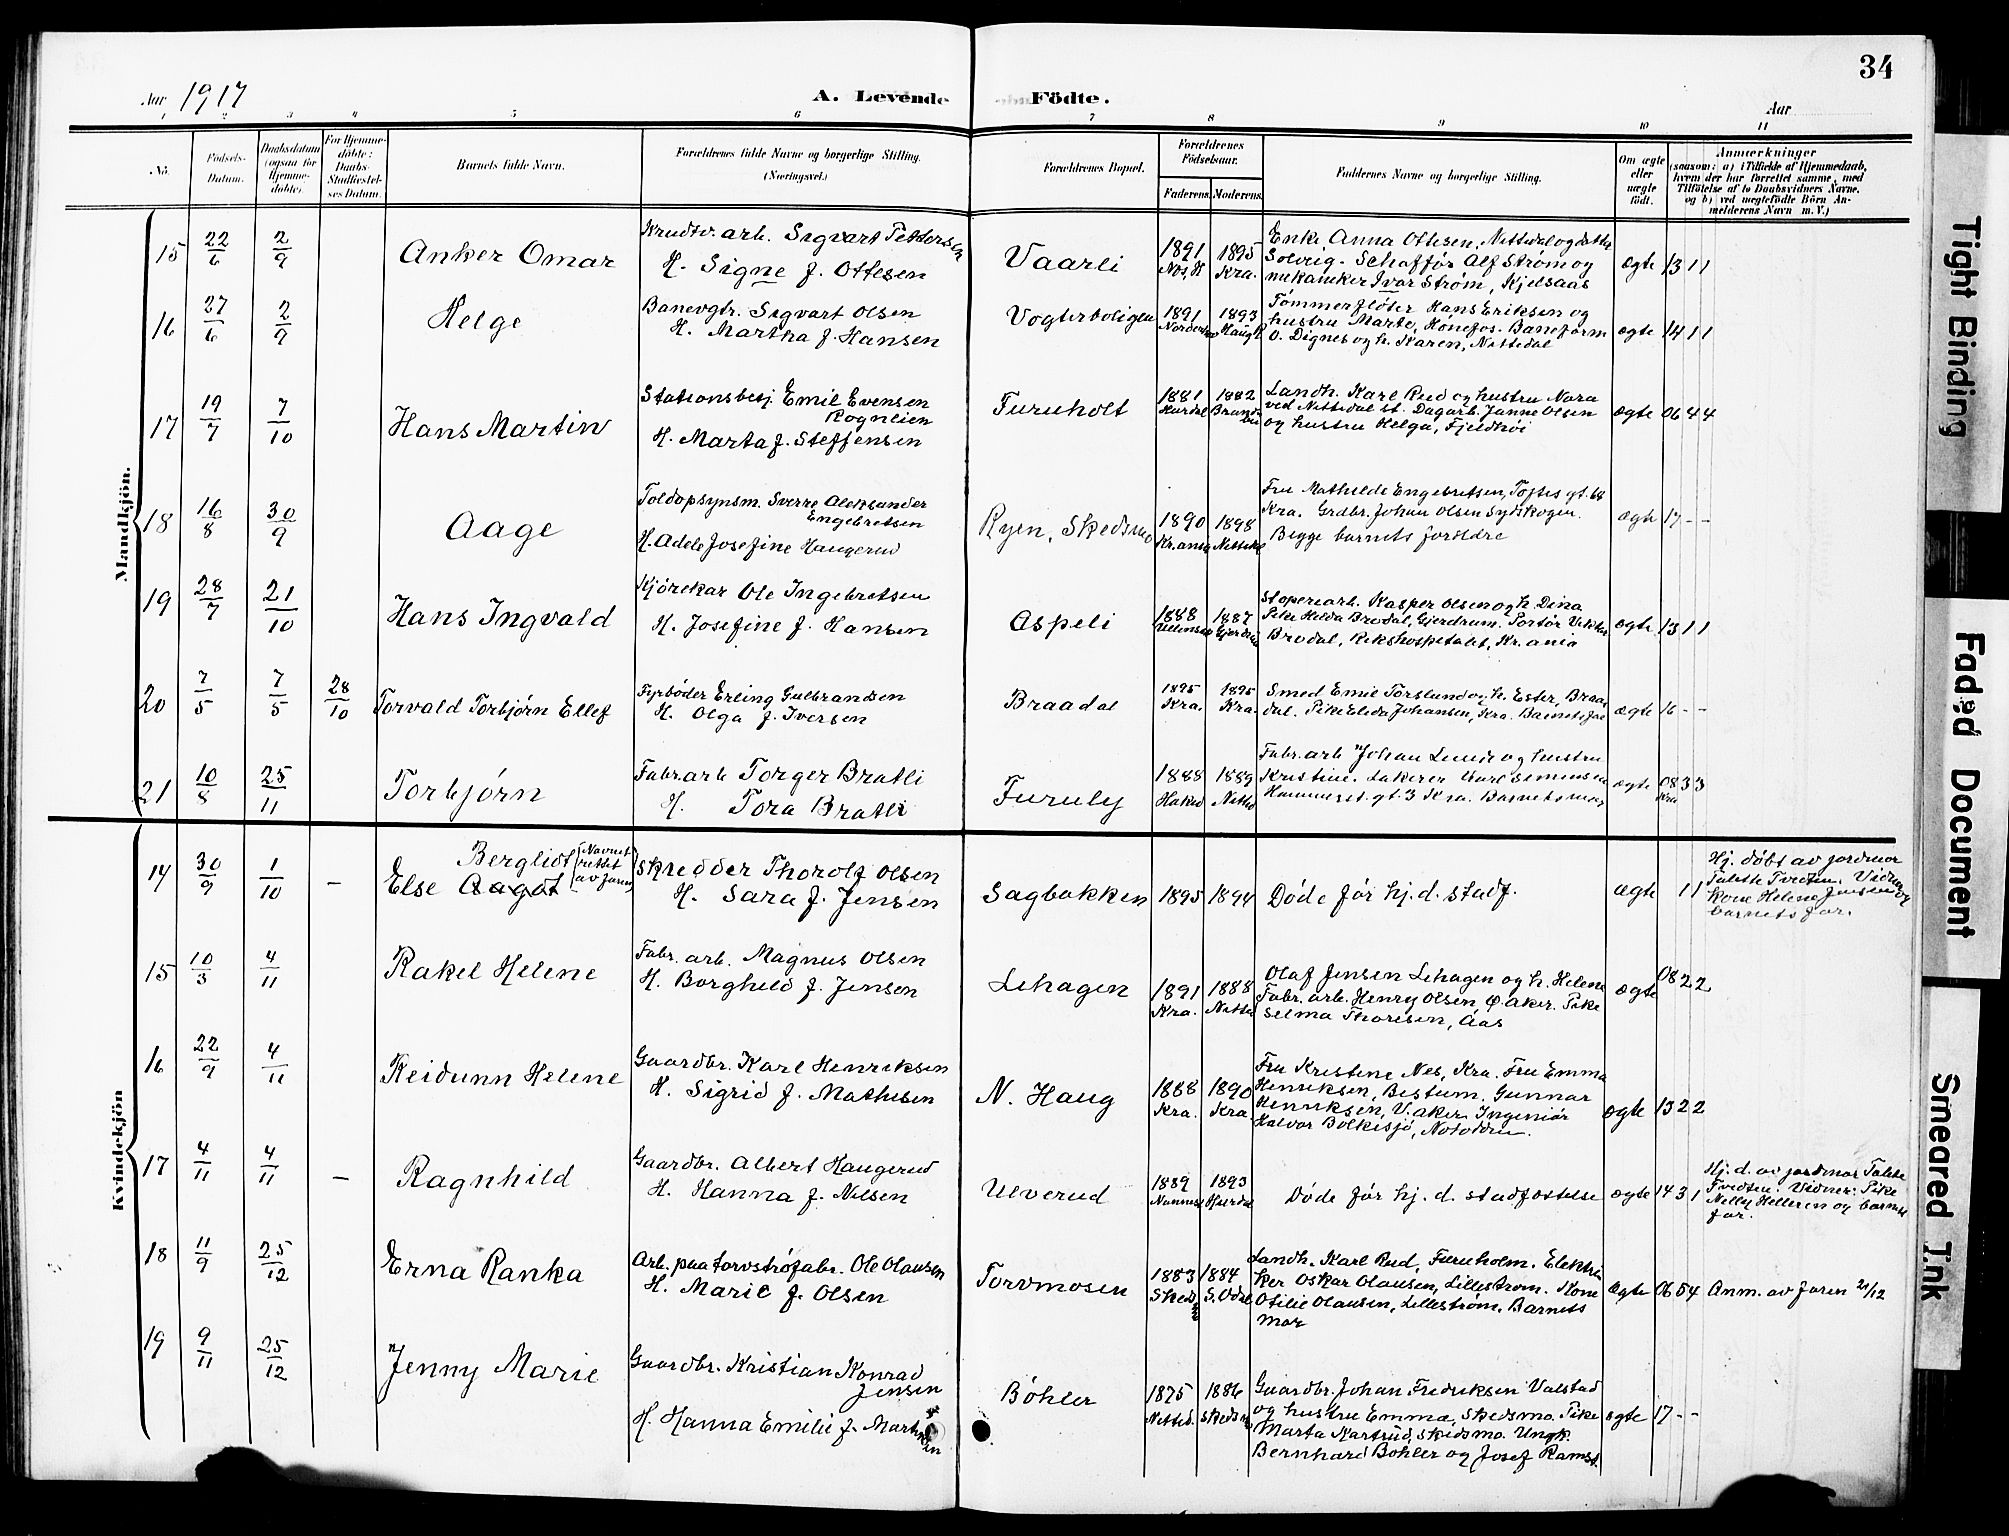 34
Aar 1917
A. Levende Födte.
Aar
3 4 5 6 7 8 9 10 11
No.
Födsels-Datum.
Daabsdatum (ogsaa for Hjemme-döbte).
For Hjemme-döbte: Daabs-Stadfæstel-ses Datum.
Barnets fulde Navn.
Forældrenes fulde Navne og borgerlige Stilling. (Næringsvei.)
Forældrenes Bopæl.
Forældrenes Födselsaar.
Faderens. Moderens.
Faddernes Navne og borgerlige Stilling.
Om ægte eller uægte födt.
Anmærkninger
(saasom: a) i Tilfælde af Hjemmedaab, hvem der har forrettet samme, med Tilföielse af to Daabsvidners Navne, og b) ved uægtefödte Börn An-melderens Navn m. V.)
Mandkjön.
15 22/6 2/9 Anker Omar
Krudtv. arb. Sigvart Pettersen
H. Signe f. Ottesen
Vaarli
1891 1895
Kra.
Enke Anna Ottesen, Nittedal og datter
Solveig. Schaffør Alf Strøm og
mekaniker Ivar Strøm, Kjelsaas
ægte 13 1 1
16 27/6 2/9 Helge
Banevgtr. Sigvart Olsen
H. Martha f. Hansen
Vogterboligen
1891 1893
Tømmerfløter Hans Eriksen og
hustru Marte, Hønefos. Baneform
O. Dignes og h. Karen, Nittedal
ægte 14 1 1
17 19/7 7/10 Hans Martin
Stationsbetj. Emil Evensen
Rognlien
H. Marta f. Steffensen
Furuholt
1881 1882
Hurdal Brandbu
Landh. Karl Rud og hustru Nora
ved Nittedal st. Dagarb. Janne Olsen
og hustru Helga, Fjeldhøi
ægte 06 4 4
18 16/8 30/9 Aage
Toldopsynsm. Sverre Aleksander
Engebretsen
H. Adele Josefine Haugerud
Ryen, Skedsmo
1890 1898
Kr.ania Nittedal
Fru Mathilde Engebretsen, Toftes gt. 68
Kra. Grdbr. Johan Olsen Sydskogen.
Begge barnets forældre
ægte 17 - -
19 28/7 21/10 Hans Ingvald
Kjørekar Ole Ingebretsen
H. Josefine f. Hansen
Aspeli
1888 1887
Ullensak Gjerdrum
Stoperiarb. Kasper Olsen og h. Dina
Pike Hilda Brodal, Gjerdrum. Portør Viktor
Brodal, Rikshospitalet, Kr.ania
ægte 13 1 1
20 7/5 7/5 28/10 Torvald Torbjørn Ellef
Fyrbøder Erling Gulbrandsen
H. Olga f. Iversen
Braadal
1895 1895
Kra. Kra.
Smed Emil Torslund og h. Ester, Braa-
dal. Pike Elida Johansen, Kra. Barnets far
ægte 16 - -
21 10/8 25/11 Torbjørn
Fabr.arb Torger Bratli
H. Tora Bratli
Furuly
1888 1889
Hakad Nitted
Fabr. arb Johan Lund og hustru
Kristine. Lakerer Karl Simensen
Hammerst. gt. 3 Kra. Barnets mor
ægte 08 3 3
Kra
Kvindekjön
14 30/9 1/10 -
Bergliot (Navnet rettet av faren)
Else Aagot
Skredder Thorolf Olsen
H. Sara f. Jensen
Sagbakken
1895 1894
Døde før hj. d. stadf.
ægte 1 1
Hj. døbt av jordmor
Talette Tvedten. Vidner
kone Helene Jensen og
barnets far.
15 10/3 4/11 Rakel Helene
Fabr. arb. Magnus Olsen
H. Borghild f. Jensen
Lehagen
1891 1888
Kra. Nitted
Olaf Jensen Lehagen og h. Helene
Fabr. arb. Henry Olsen, Ø. Aker. Pike
Selma Thoresen, Aas
ægte 08 2 2
16 22/9 4/11 Reidunn Helene
Gaardbr. Karl Henriksen
H. Sigrid f. Mathisen
N. Haug
1888 1890
Kra. Kra
Fru Kristine Nes, Kra. Fru Emma
Henriksen, Bestum, Gunnar
Henriksen, V. aker. Ingeniør
Halvor Bolkesjø, Notodden.
ægte 13 2 2
17 4/11 4/11 - Ragnhild
Gaardbr. Albert Haugerud
H. Hanna f. Nilsen
Ulverud
1889 1893
Nannest Hurdal
Døde før hj. d. stadfæstelse
ægte 14 3 1
Hj. d. av jordmor Talette
Tvedten. Vidner: Pike
Nelly Helleren og barnets
far.
18 11/9 25/12 Erna Ranka
Arb. paa torvstrøfabr. Ole Olausen
H. Marie f. Olsen
Torvmosen
1883 1884
Skedsm S. Odal
Landh. Karl Rud, Furuholm. Elektri-
ker Oskar Olausen, Lillestrøm. Kone
Otilie Olausen, Lillestrøm. Barnets
mor
ægte 06 5 4 Anm. av faren 21/12
19 9/11 25/12 Jenny Marie
Gaardbr. Kristian Konrad
Jensen
H. Hanna Emilie f. Martinsen
Bøhler
1875 1886
Nitted. Skedsmo
Gaardbr. Johan Fredriksen Valstad
og hustru Emma, Skedsmo. Pike
Marta Kartrud, Skedsmo. Ungk.
Bernhard Bøhler og Josef Ramst.
ægte 17 - -
Tight Binding
Faded Document
Smeared Ink